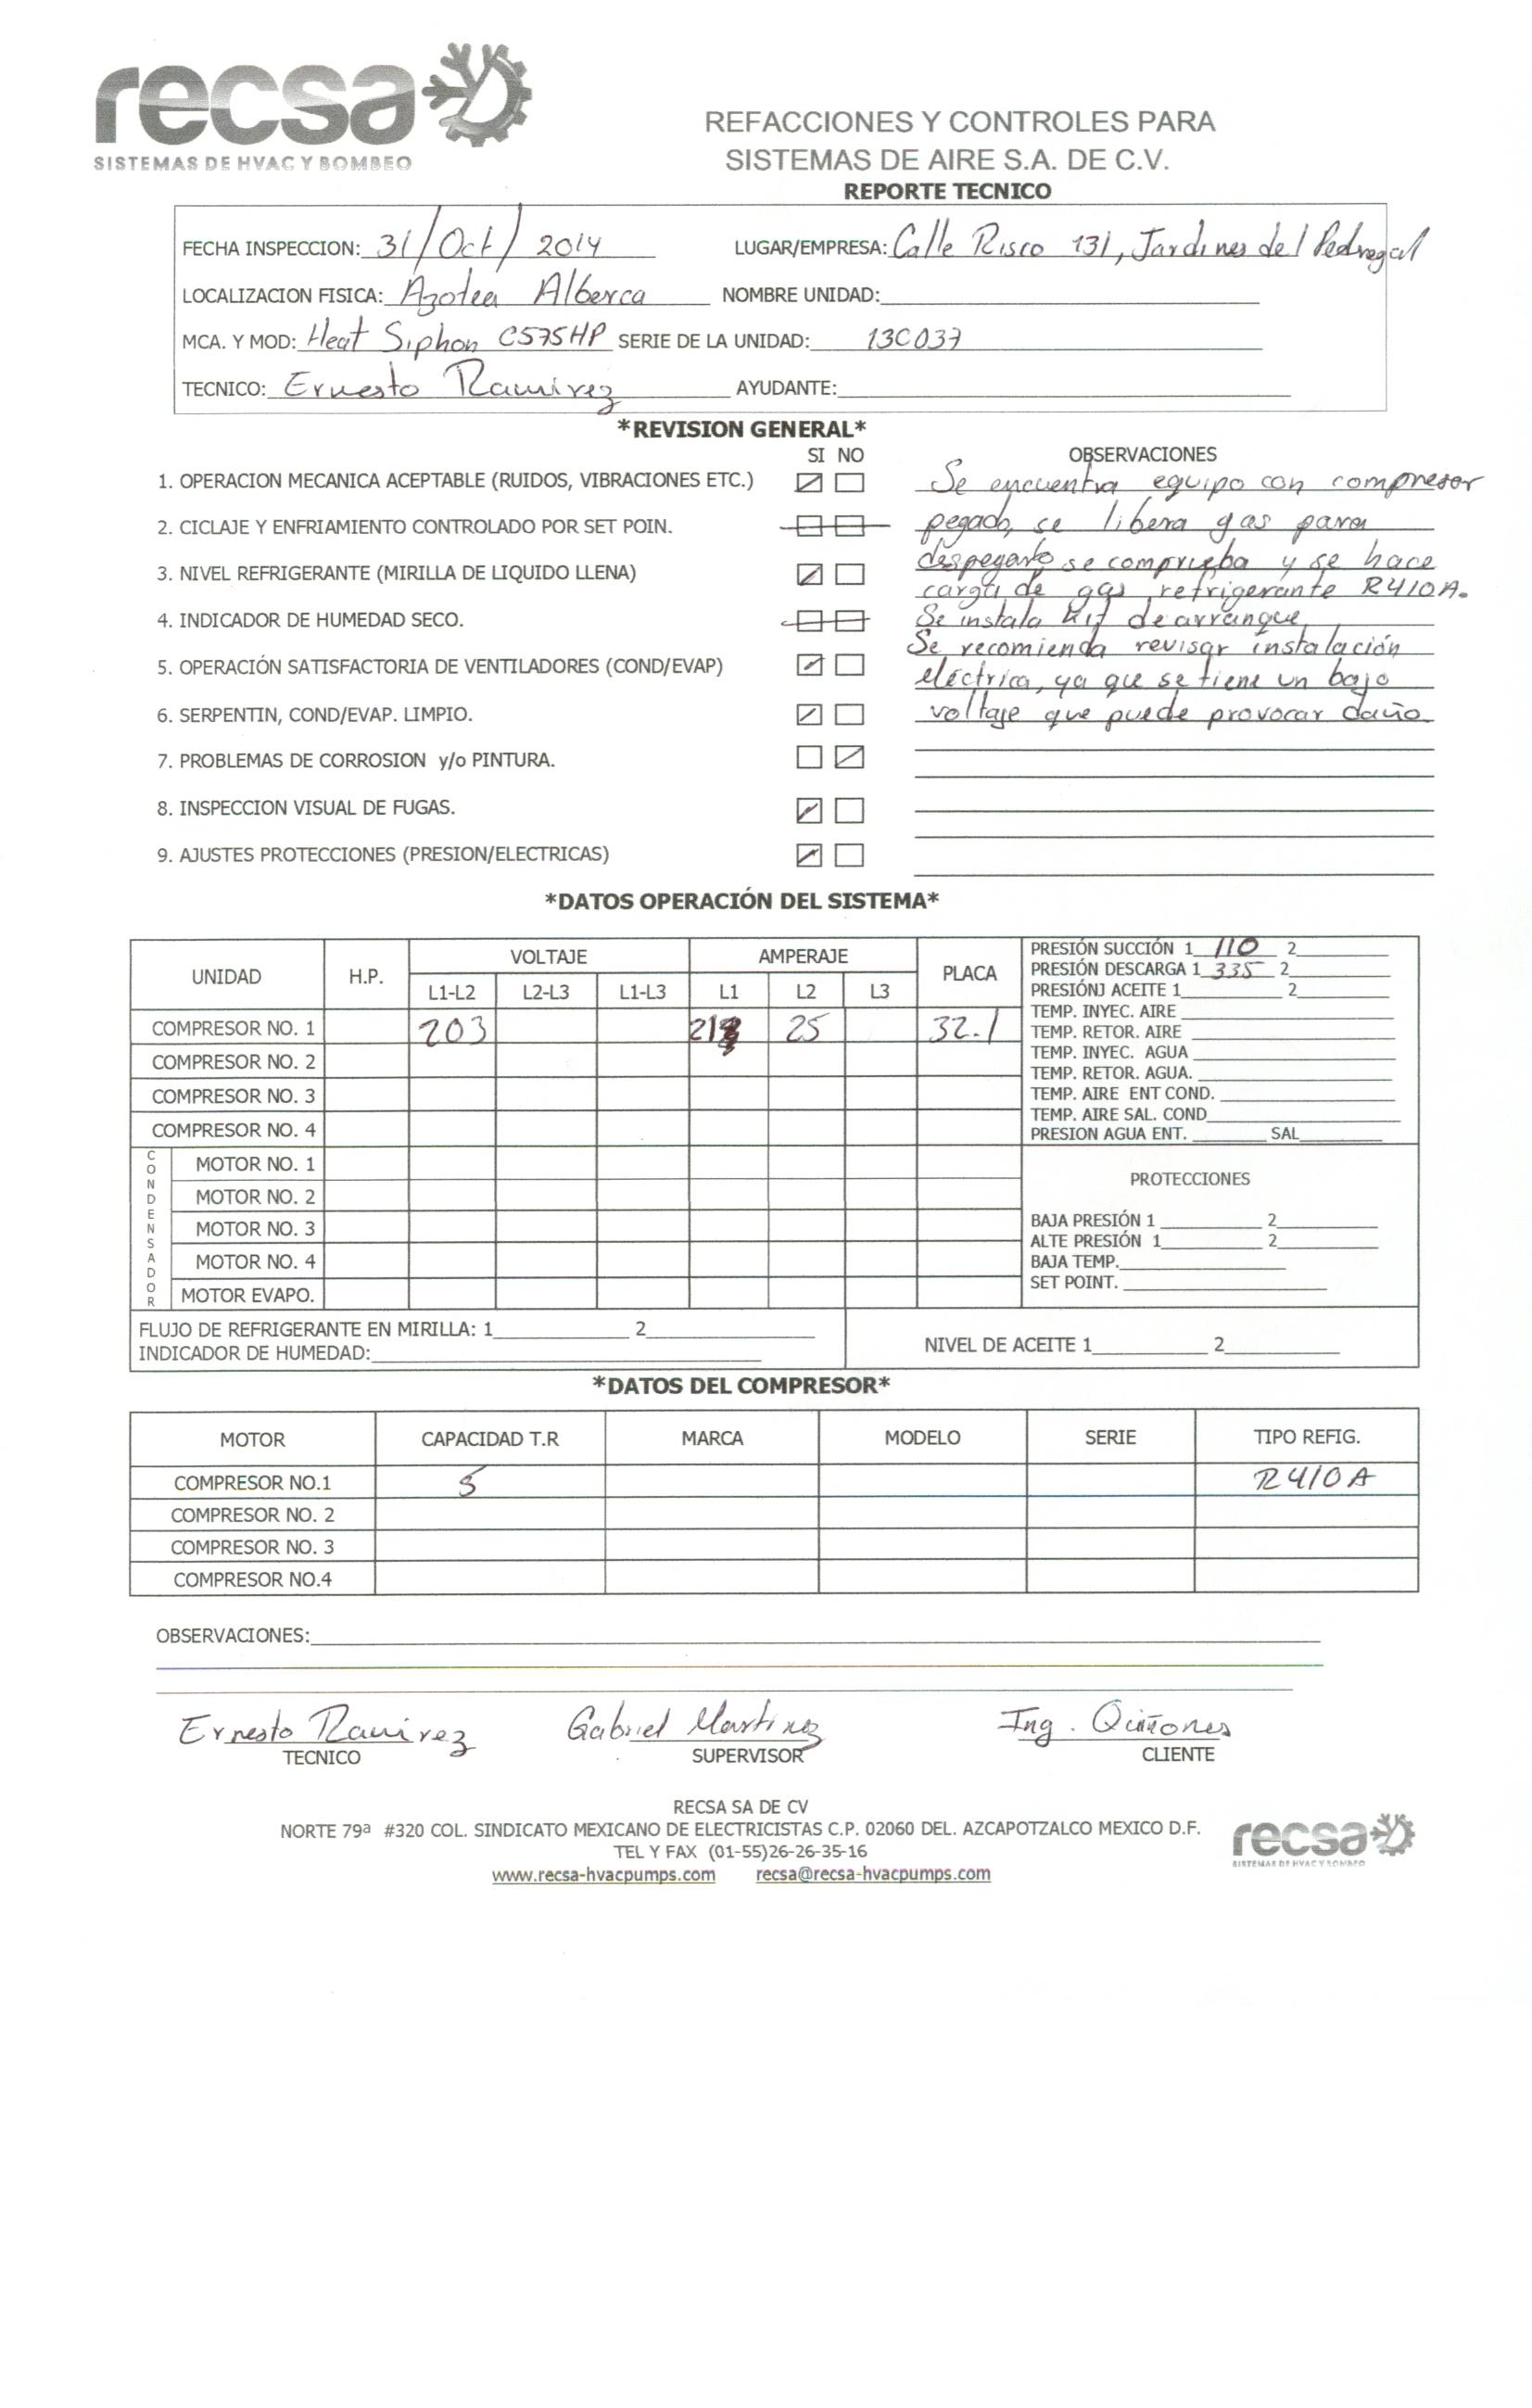 recsa
SISTEMAS DE HVAC Y BOMBEO
REFACCIONES Y CONTROLES PARA
SISTEMAS DE AIRE S.A. DE C.V.
REPORTE TECNICO
FECHA INSPECCION: 31/Oct/2014 LUGAR/EMPRESA: Calle Risco 131, Jardines del Pedregal
LOCALIZACION FISICA: Azotea Alberca NOMBRE UNIDAD:
MCA. Y MOD: Heat Siphon C575HP SERIE DE LA UNIDAD: 13C037
TECNICO: Ernesto Ramirez AYUDANTE:
*REVISION GENERAL*
SI NO
1. OPERACION MECANICA ACEPTABLE (RUIDOS, VIBRACIONES ETC.)
2. CICLAJE Y ENFRIAMIENTO CONTROLADO POR SET POIN.
3. NIVEL REFRIGERANTE (MIRILLA DE LIQUIDO LLENA)
4. INDICADOR DE HUMEDAD SECO.
5. OPERACIÓN SATISFACTORIA DE VENTILADORES (COND/EVAP)
6. SERPENTIN, COND/EVAP. LIMPIO.
7. PROBLEMAS DE CORROSION y/o PINTURA.
8. INSPECCION VISUAL DE FUGAS.
9. AJUSTES PROTECCIONES (PRESION/ELECTRICAS)
OBSERVACIONES
Se encuentra equipo con compresor
pegado, se libera gas para
despegarlo se comprueba y se hace
carga de gas refrigerante R410A.
Se instala kit de arranque
Se recomienda revisar instalación
eléctrica, ya que se tiene un bajo
voltaje que puede provocar daño
*DATOS OPERACIÓN DEL SISTEMA*
UNIDAD H.P. VOLTAJE AMPERAJE PLACA
L1-L2 L2-L3 L1-L3 L1 L2 L3
COMPRESOR NO. 1 203 25 32.1
COMPRESOR NO. 2
COMPRESOR NO. 3
COMPRESOR NO. 4
CONDENSADOR
MOTOR NO. 1
MOTOR NO. 2
MOTOR NO. 3
MOTOR NO. 4
MOTOR EVAPO.
PRESIÓN SUCCIÓN 1 110 2
PRESIÓN DESCARGA 1 335 2
PRESIÓNJ ACEITE 1 2
TEMP. INYEC. AIRE
TEMP. RETOR. AIRE
TEMP. INYEC. AGUA
TEMP. RETOR. AGUA.
TEMP. AIRE ENT COND.
TEMP. AIRE SAL. COND
PRESION AGUA ENT. SAL
PROTECCIONES
BAJA PRESIÓN 1 2
ALTE PRESIÓN 1 2
BAJA TEMP.
SET POINT.
FLUJO DE REFRIGERANTE EN MIRILLA: 1 2
INDICADOR DE HUMEDAD:
NIVEL DE ACEITE 1 2
*DATOS DEL COMPRESOR*
MOTOR CAPACIDAD T.R MARCA MODELO SERIE TIPO REFIG.
COMPRESOR NO.1 5 R410A
COMPRESOR NO. 2
COMPRESOR NO. 3
COMPRESOR NO.4
OBSERVACIONES:
Ernesto Ramirez Gabriel Martinez Ing. Quiñones
TECNICO SUPERVISOR CLIENTE
RECSA SA DE CV
NORTE 79ª #320 COL. SINDICATO MEXICANO DE ELECTRICISTAS C.P. 02060 DEL. AZCAPOTZALCO MEXICO D.F.
TEL Y FAX (01-55)26-26-35-16
www.recsa-hvacpumps.com recsa@recsa-hvacpumps.com
recsa
SISTEMAS DE HVAC Y BOMBEO